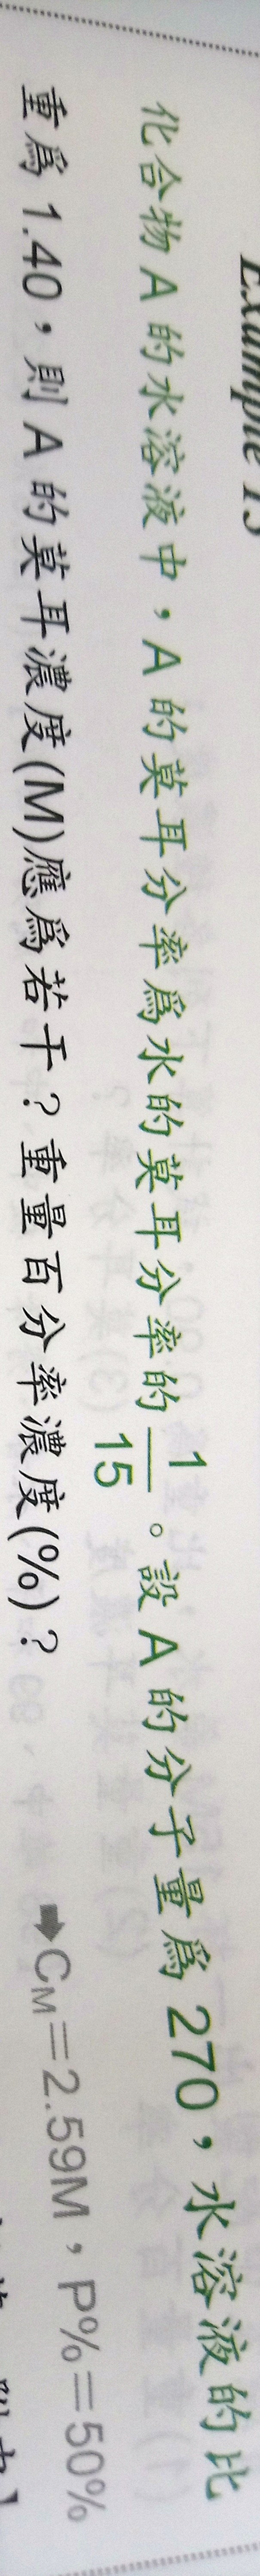 Example 15
化合物 A 的水溶液中，A 的莫耳分率爲水的莫耳分率的 1/15 。設 A 的分子量爲 270，水溶液的比
重爲 1.40，則 A 的莫耳濃度(M)應爲若干？重量百分率濃度(%)？
➡CM=2.59M，P%=50%